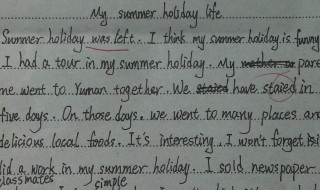 My summer holiday life
Summer holiday was left. I think my summer holiday is funny
I had a tour in my summer holiday. My mother or pare
me went to Yunan together. We staied have staied in
five days. On those days. we went to many places an
delicious local foods. It's interesting. I won't forget
did a work in my summer holiday. I sold newspaper
classmates simple